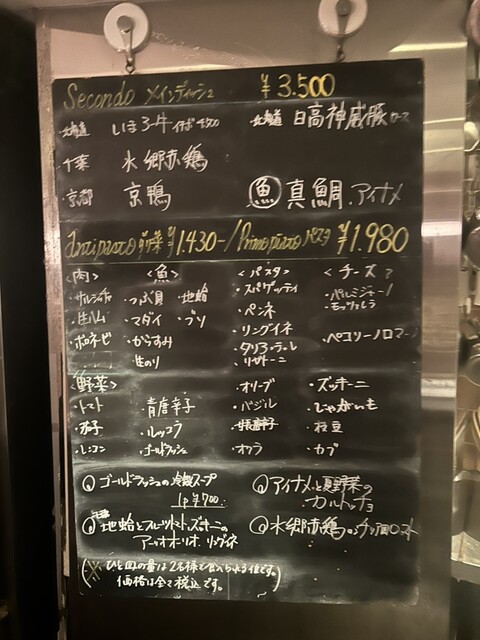 Secondo メインディッシュ ¥3.500
・北海道 いぼろ牛 イチボ 4500
・北海道 日高神威豚 ロース
・千葉 水郷赤鶏
・京都 京鴨
魚 真鯛.アイナメ
Antipasto 前菜 ¥1.430-/Primo piatto パスタ ¥1.980
〈肉〉 〈魚〉 〈パスタ〉 〈チーズ〉
・サルシッチャ ・つぶ貝 ・地蛤 ・スパゲッティ ・パルミジャーノ
・生ハム ・マダイ ・ブリ ・ペンネ ・モッツァレラ
・ボロネーゼ ・からすみ ・リングイネ ・ペコリーノロマーノ
・生のり ・タリアテッレ
・リガトーニ
〈野菜〉 ・オリーブ ・ズッキーニ
・トマト ・青唐辛子 ・バジル ・じゃがいも
・茄子 ・ルッコラ ・枝豆
・レンコン ・ゴールドラッシュ ・オクラ ・カブ
ゴールドラッシュの冷製スープ
1p ¥700.
アイナメと夏野菜の
カルトッチョ
地蛤とフルーツトマト、ズッキーニの
アーリオオーリオ リングイネ
水郷赤鶏のチッチョロースト
(※ひと皿の量は2名様で食べられる位です。
価格は全て税込です。)